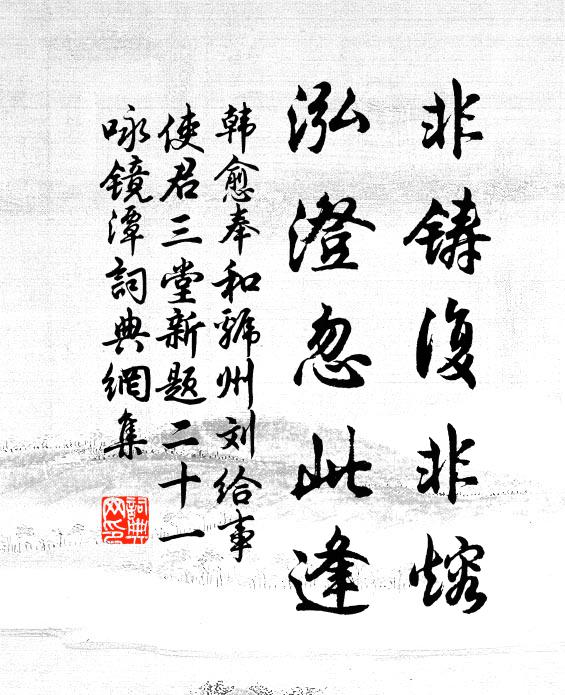 非铸复非熔
泓澄忽此逢
韩愈奉和虢州刘给事
使君三堂新题二十一
咏镜潭詞典網集